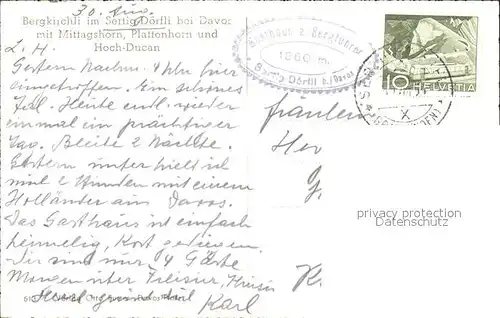 30. Aug.
Bergkirchli im Sertig Dörfli bei Davos
mit Mittagshorn, Plattenhorn und
Hoch-Ducan
L. H.
Gasthaus z. Bergführer
1860 m.
Sertig Dörfli b/Davos
10 HELVETIA
X
Gestern Nachm. 4 Uhr hier
eingetroffen. Ein schönes
Tal. Heute endl. wieder
einmal ein prächtiger
Tag. Bleibe 2 Nächte.
Gestern unterhielt ich
mich 2 Stunden mit einem
Holländer aus Davos.
Das Gasthaus ist einfach
heimelig, Kost gediegen.
Wir sind nur 4 Gäste
Morgen unter
Karl
Fräulein
Her
G.
K.
privacy protection
Datenschutz